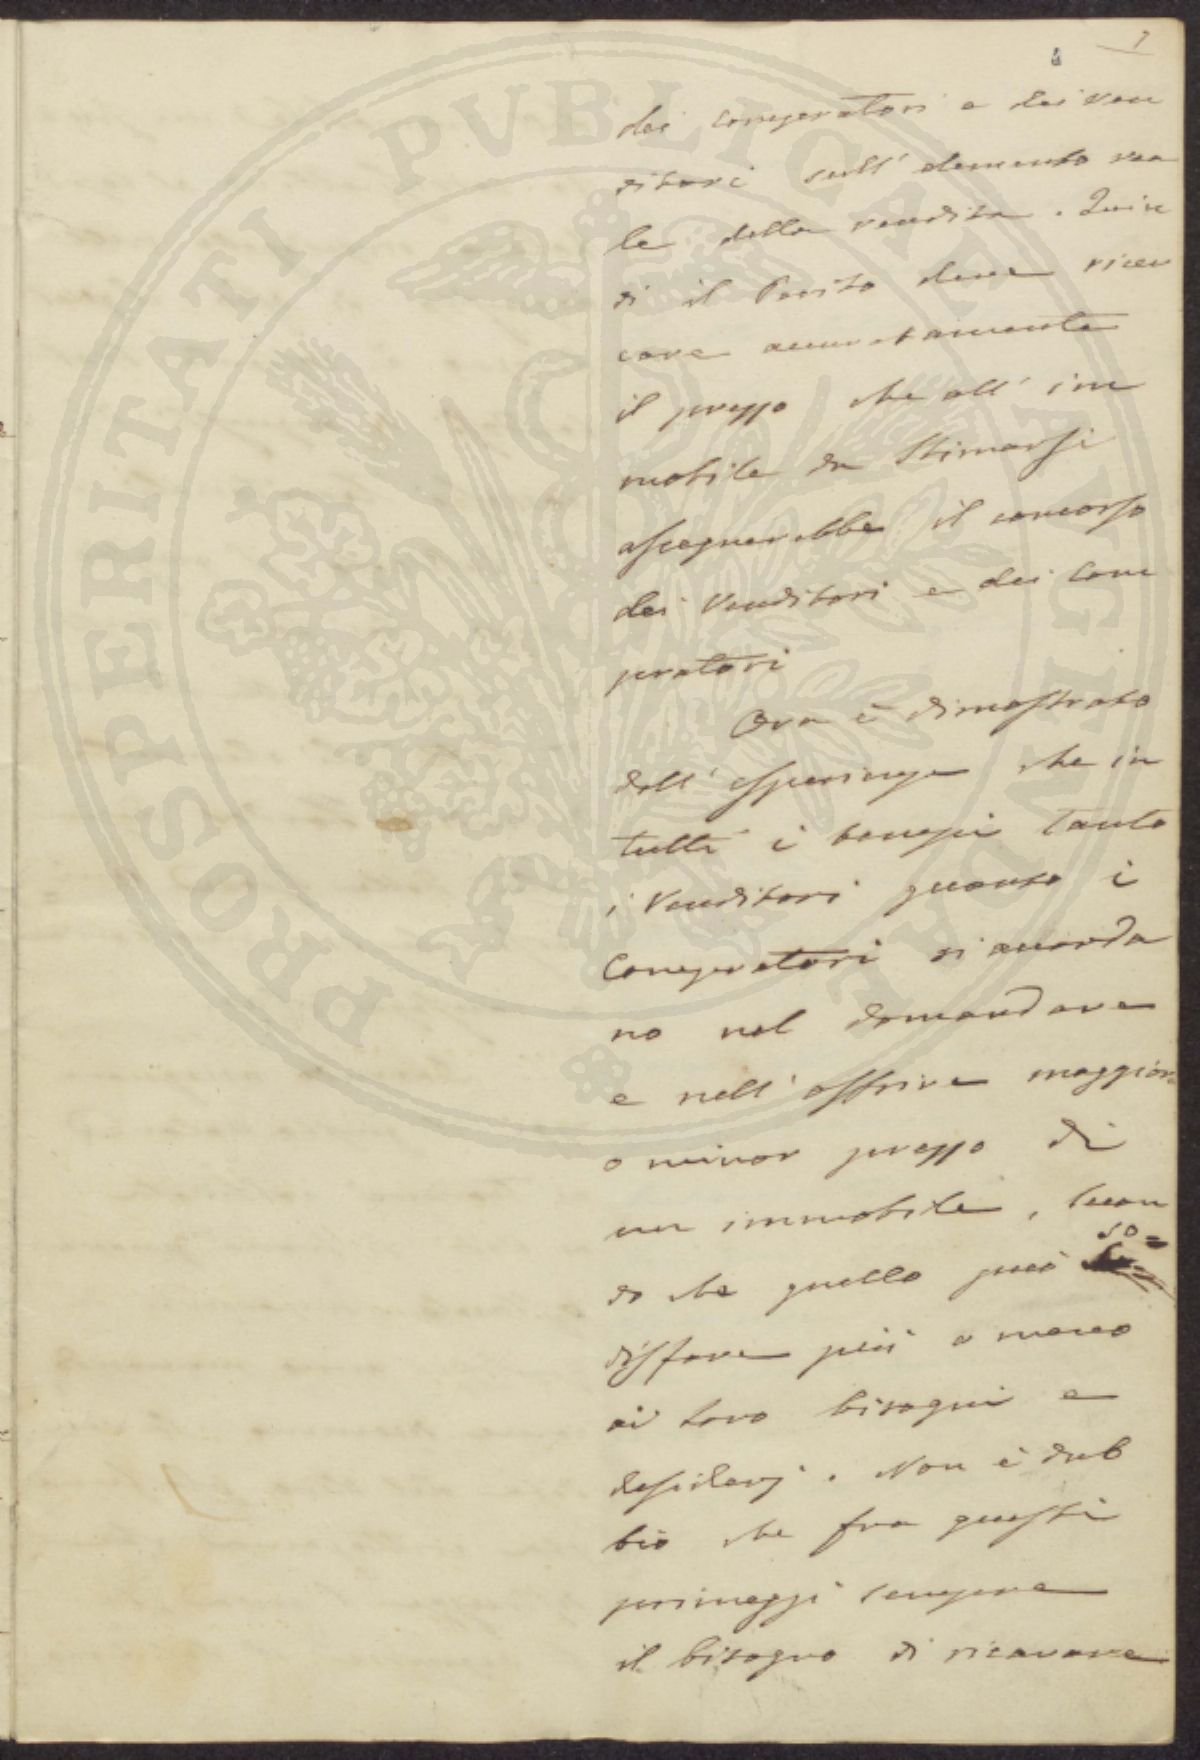 7
dei compratori e dei ven
ditori sull' elemento rea
le della vendita. Quin
di il Perito deve ricer
care accuratamente
il prezzo che all' im
mobile da stimarsi
assegnerebbe il concorso
dei Venditori e dei Com
pratori
Ora è dimostrato
dall' esperienza che in
tutti i tempi tanto
i Venditori quanto i
Compratori si accorda
no nel domandare
e nell' offrire maggiore
o minor prezzo di
un immobile, secon
do che quello può so=
disfare più o meno
ai loro bisogni e
desiderj. Non è dub
bio che fra questi
primeggi sempre
il bisogno di ricavare
PROSPERITATI PVBLICAE AVGENDAE